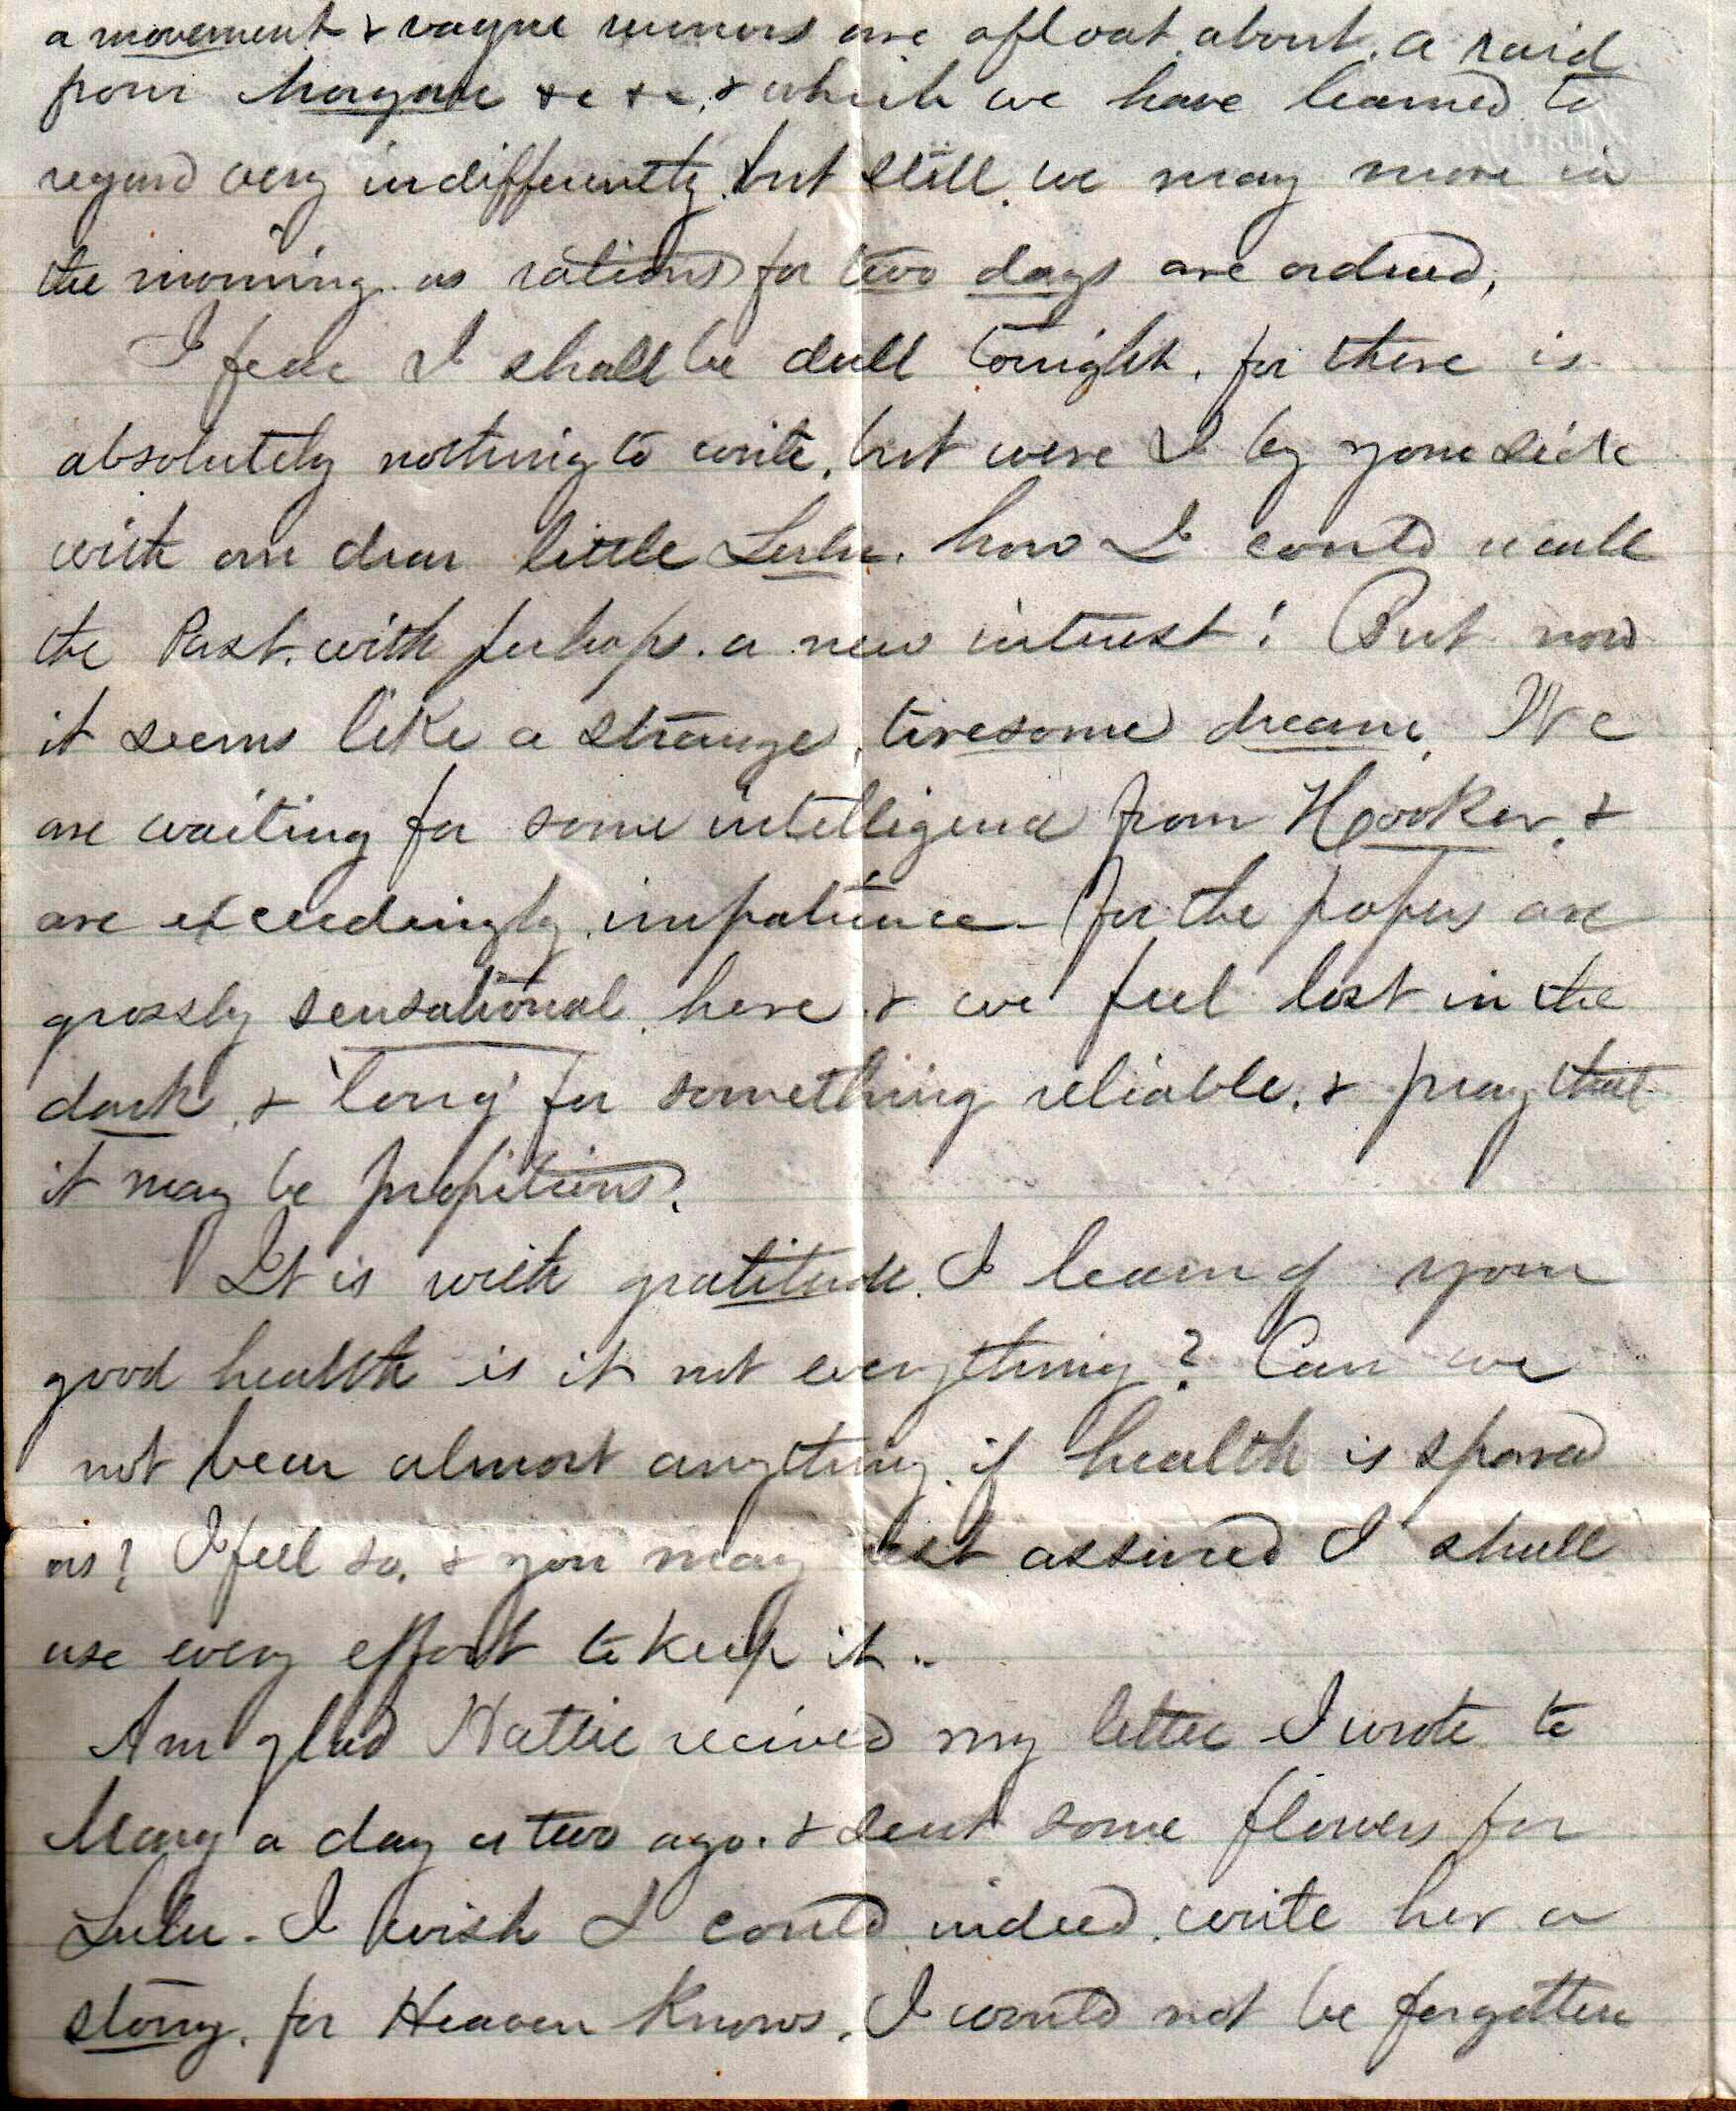 a movement & vague rumors are afloat about a raid
from Morgan &c &c, & which we have learned to
regard very indifferently, but still we may move in
the morning as rations for two days are ordered,
I fear I shall be dull tonight, for there is
absolutely nothing to write, but were I by your side
with our dear little Lulu, how I could recall
the Past, with perhaps a new interest! But now
it seems like a strange, tiresome dream. We
are waiting for some intelligence from Hooker, &
are exceedingly impatience - for the papers are
grossly sensational here & we feel lost in the
dark, & 'long' for something reliable, & pray that
it may be propitious.
It is with gratitude, I learn of your
good health is it not everything? Can we
not bear almost anything, if health is spared
us? I feel so, & you may rest assured I shall
use every effort to keep it.
Am glad Hattie recived my letter I wrote to
Mary a day or two ago. & sent some flowers for
Lulu - I wish I could indeed, write her a
story, for Heaven Knows, I would not be forgotten